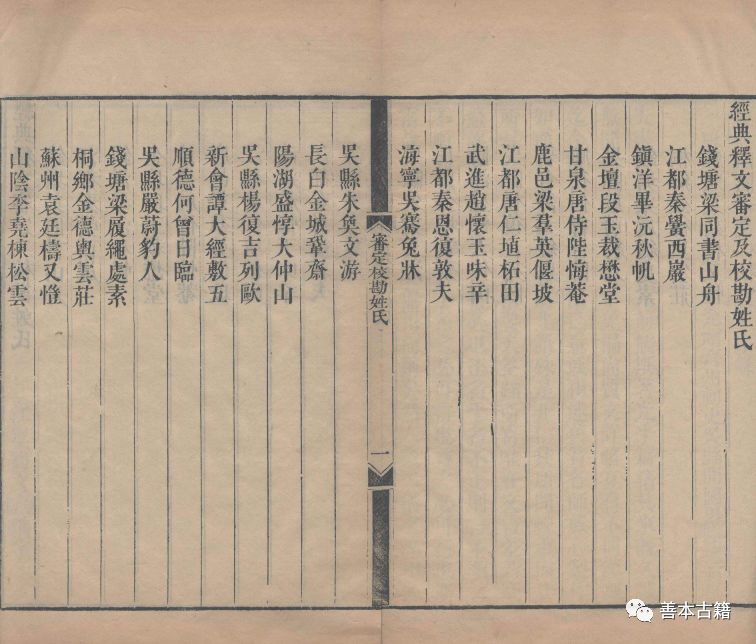 經典釋文審定及校勘姓氏
錢塘梁同書山舟
江都秦黌西巖
鎮洋畢沅秋帆
金壇段玉裁懋堂
甘泉唐侍陛悔菴
鹿邑梁羣英偃坡
江都唐仁埴柘田
武進趙懷玉味辛
江都秦恩復敦夫
海寧吳騫兔牀
審定校勘姓氏
一
吳縣朱奐文游
長白金城鞏齋
陽湖盛惇大仲山
吳縣楊復吉列歐
新會譚大經敷五
順德何曾日臨
吳縣嚴蔚豹人
錢塘梁履繩處素
桐鄉金德輿雲莊
蘇州袁廷檮又愷
山陰李堯棟松雲
善本古籍